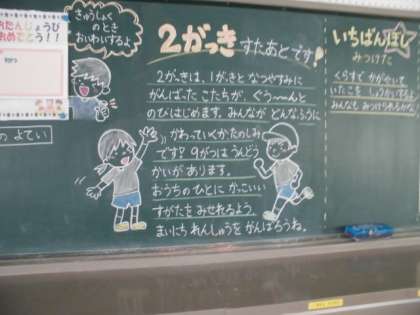 おたんじょうび
おめでとう!!
きゅうしょく
のとき
おいわいするよ
のよてい
2がっき すたあとです!
2がっきは、1がっきと なつやすみに
がんばった こたちが、ぐぅ〜〜んと
のびはじめます。みんなが どんなふうに
かわっていくかたのしみ
です♡ 9がつは うんどう
かいが あります。
おうちの ひとに かっこいい
すがたを みせれるよう、
まいにち れんしゅうを がんばろうね。
いちばんぼし
みつけた
くらすで かがやいて
いたこを しょうかいするよ
みんなも みつけられるかな